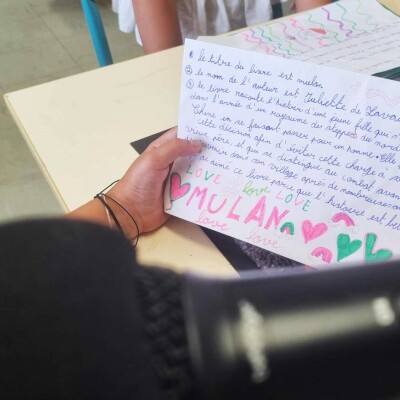 ① le titre du livre est mulan
② le nom de l'auteur est Juliette de Lavau
③ le livre raconte l'histoire d'une jeune fille qui s'
dans l'armée d'un royaume du steppes du nord
Chine en se faisant passer pour un homme. Elle
Cette décision afin d'éviter cette charge à so
vieux père, et qui se distingue au combat avant
revenir dans son village après de nombreuses
ai aimé ce livre parce que l'histoire est bel
LOVE love LOVE
MULAN
love love